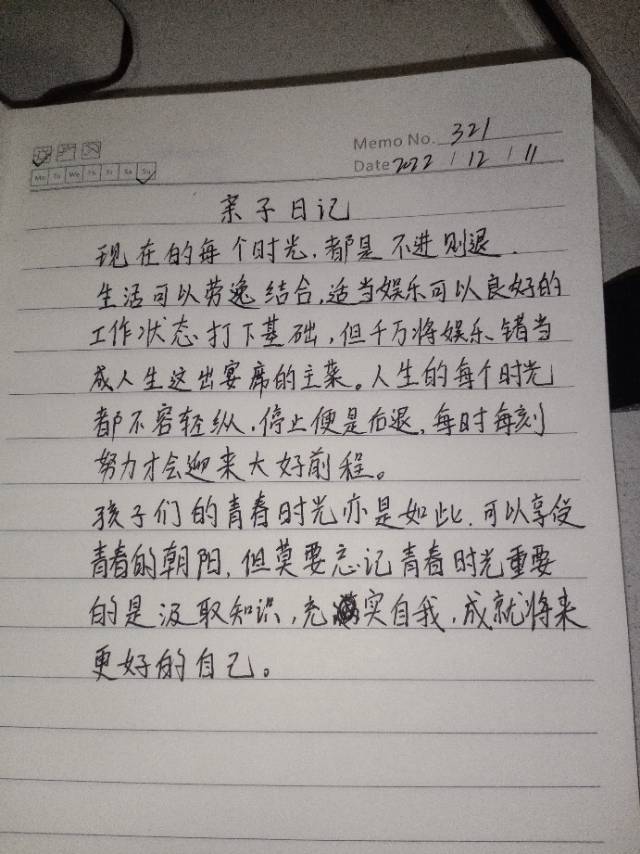 Memo No. 321
Mo Tu We Th Fr Sa Su
Date 2022 / 12 / 11
亲子日记
现在的每个时光，都是不进则退．
生活可以劳逸结合，适当娱乐可以良好的
工作状态打下基础，但千万将娱乐错当
成人生这出宴席的主菜。人生的每个时光
都不容轻纵，停止便是后退，每时每刻
努力才会迎来大好前程。
孩子们的青春时光亦是如此．可以享受
青春的朝阳，但莫要忘记青春时光重要
的是汲取知识，充实自我，成就将来
更好的自己。